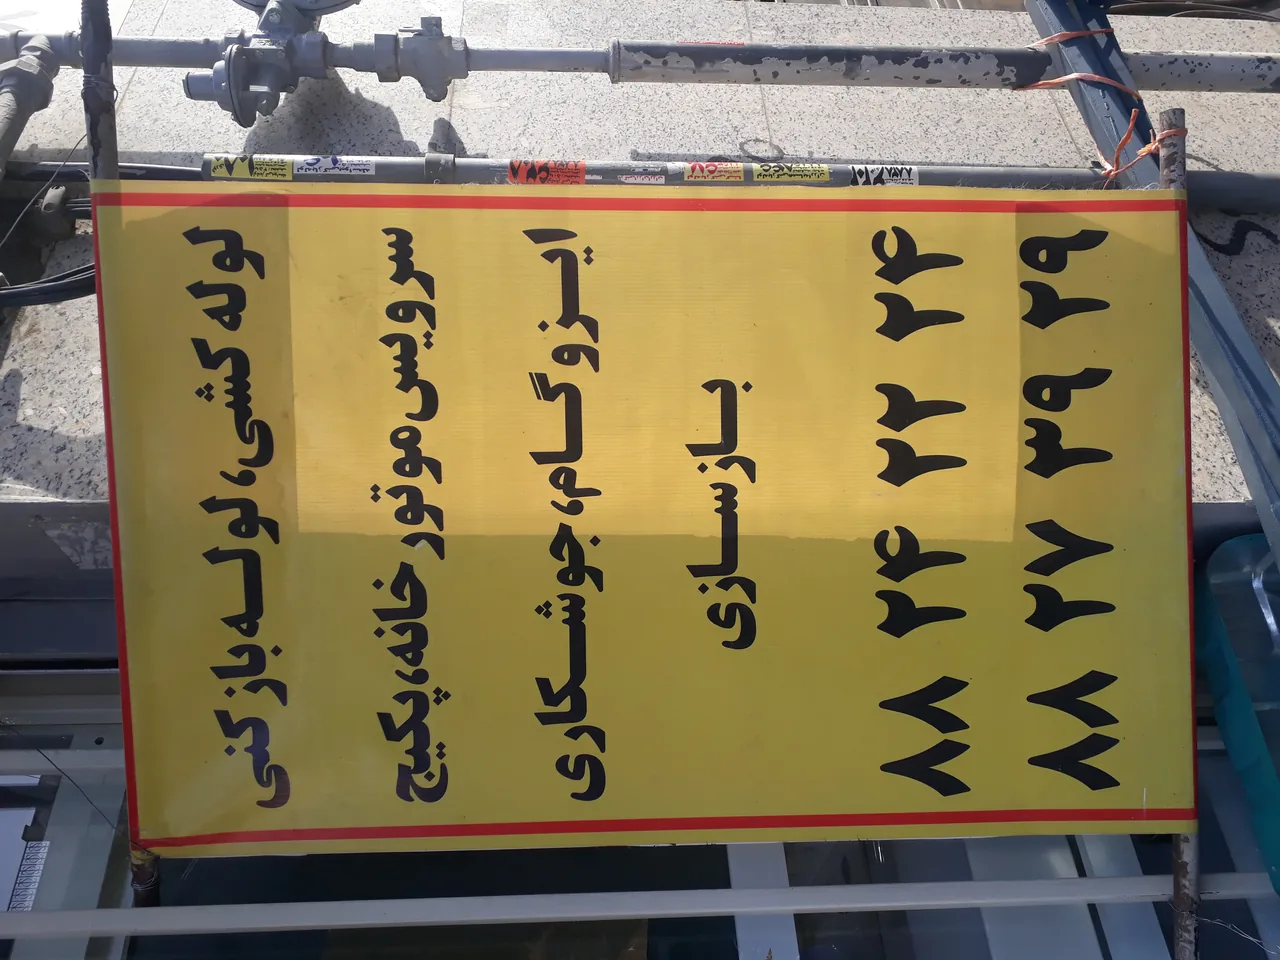 لوله کشی، لوله بازکنی
سرویس موتورخانه، پکیج
ایزوگام، جوشکاری
بازسازی
۸۸ ۲۴ ۲۲ ۲۴
۸۸ ۲۷ ۳۹ ۲۹